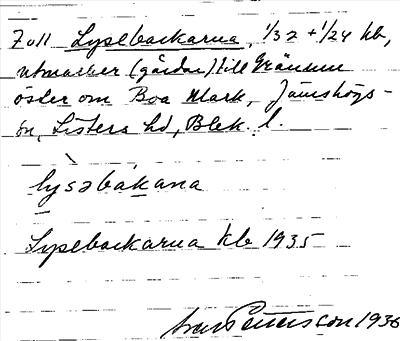 7. oll Lysebackarna, 1/32 + 1/24 kb,
utmarker (gårdar) till Gränum
öster om Boa Mark, Jämshögs-
sn, Listers hd, Blek. l.
lysəbàkana
Lysebackarna kb 1935
Ivar Petersson 1936